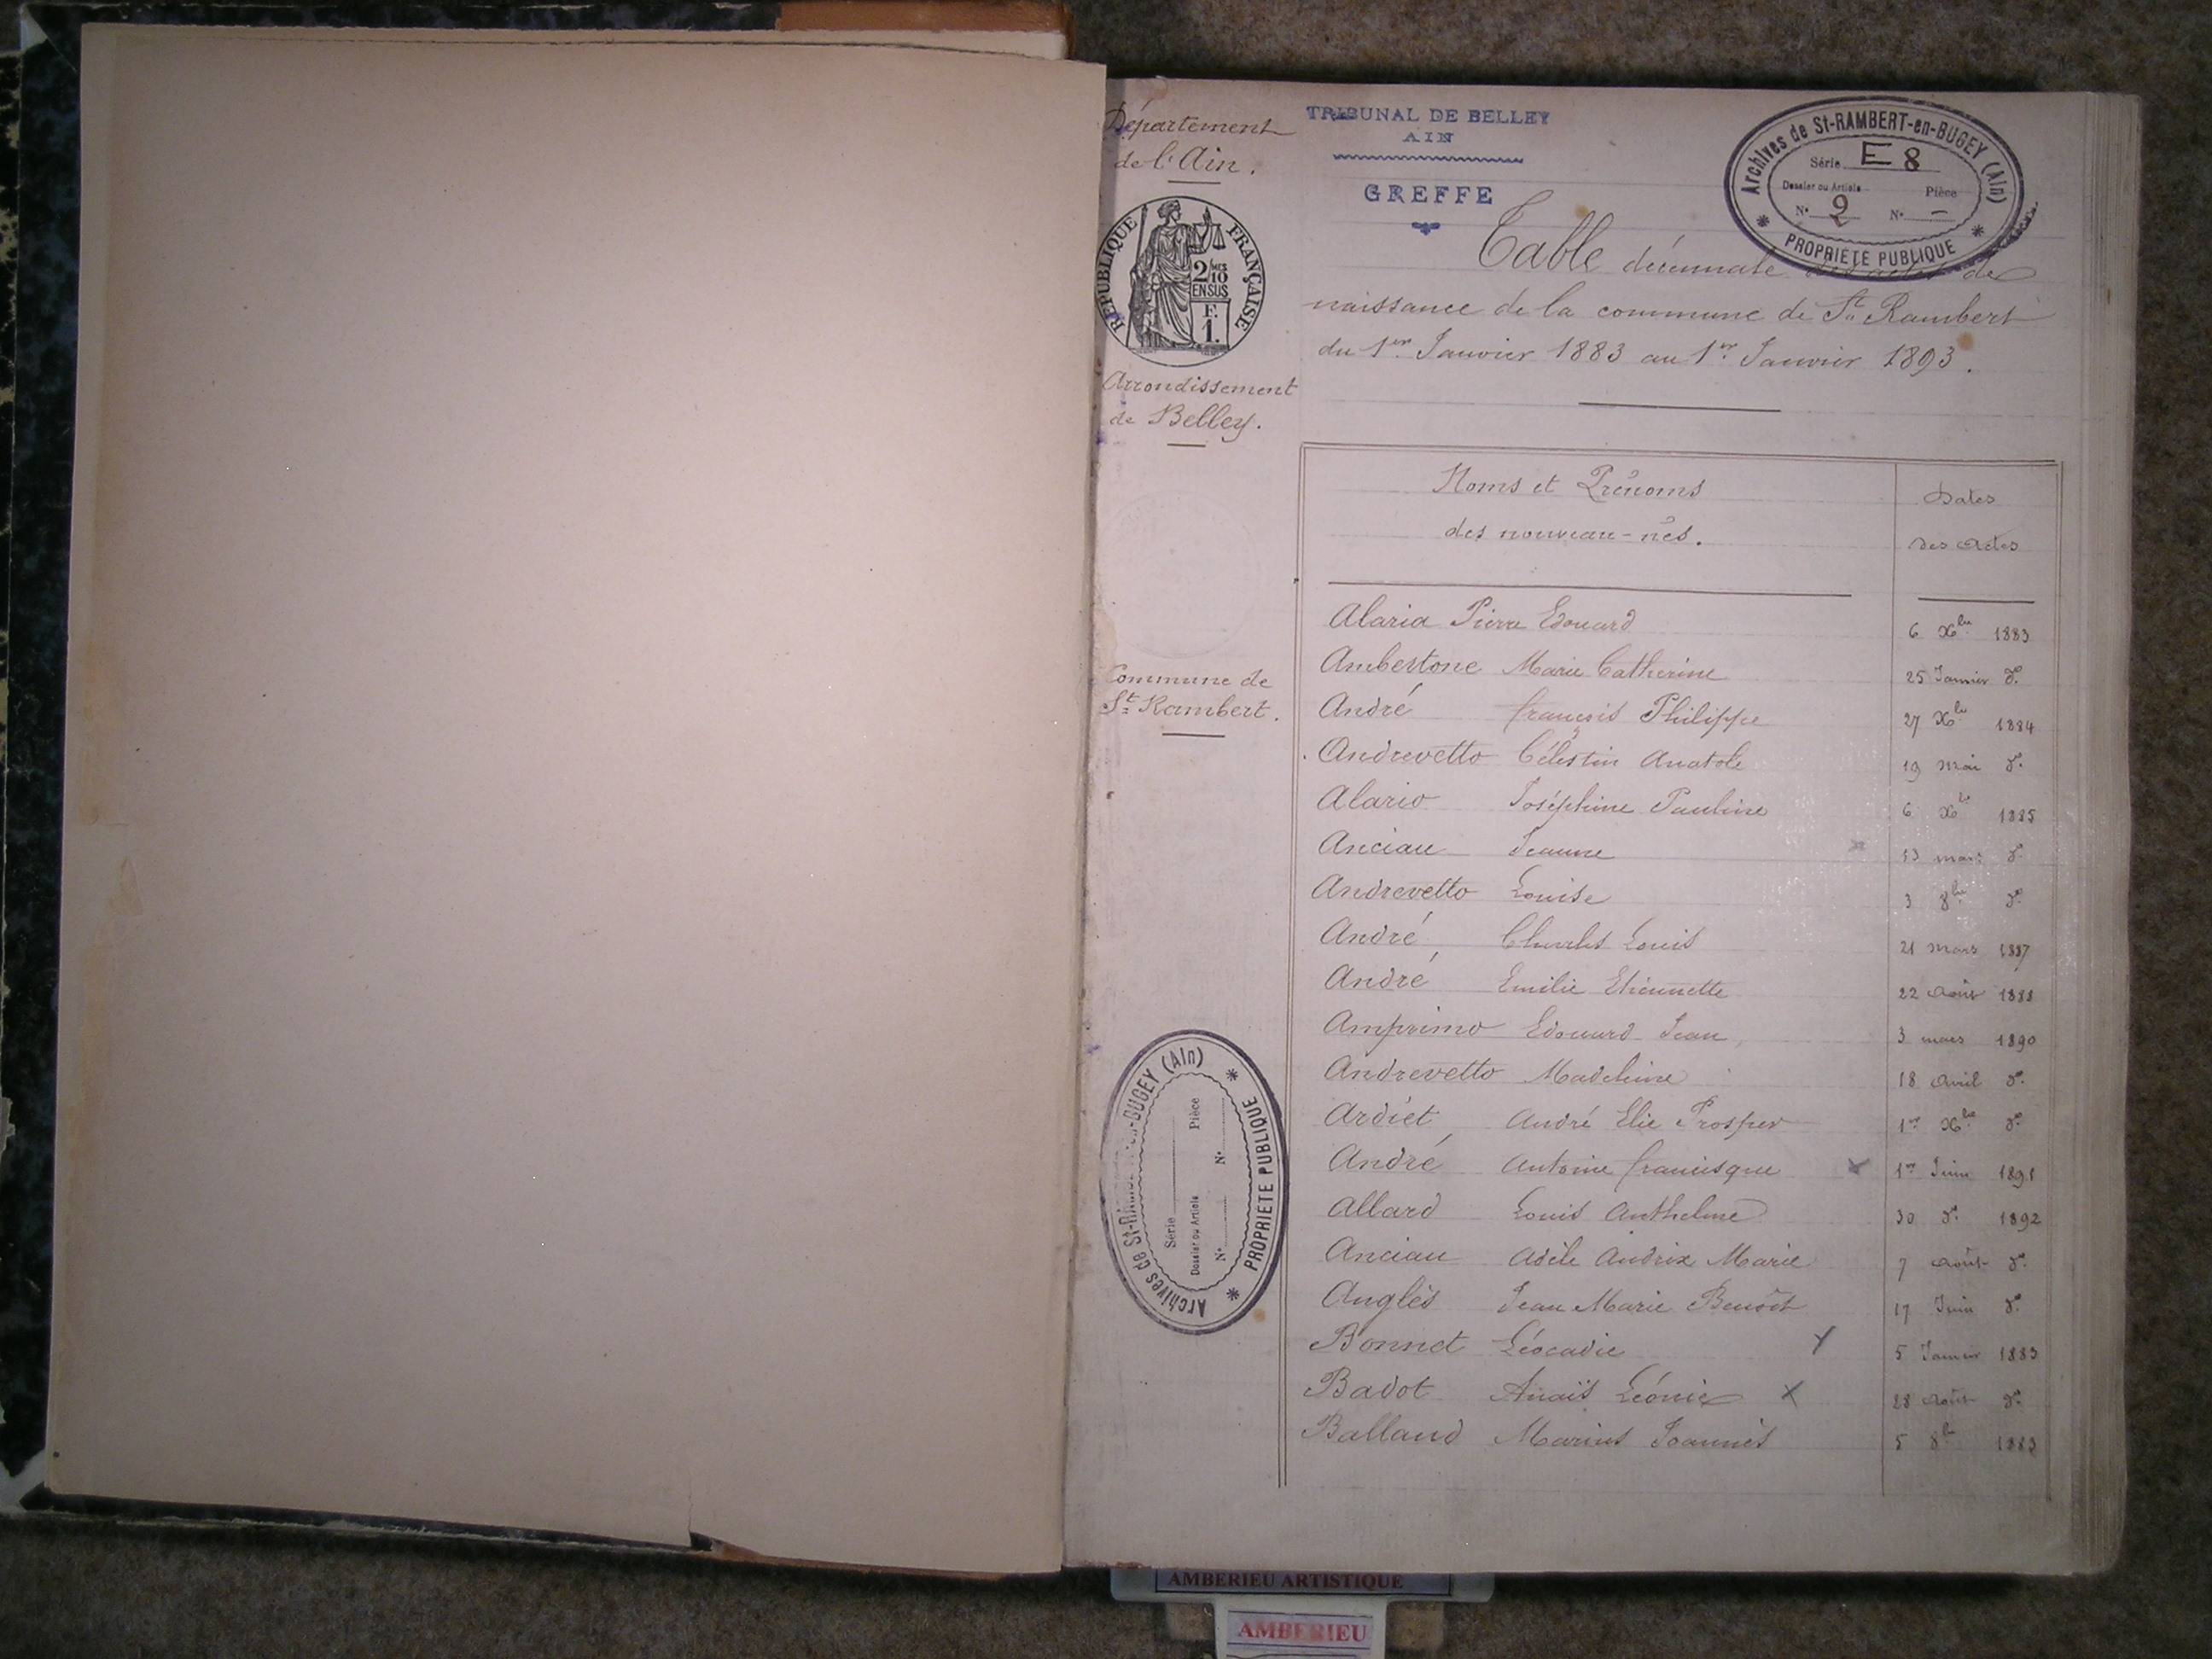 Département
de l'Ain.
REPUBLIQUE FRANÇAISE
2/10 MES
EN SUS
F.
1.
Arrondissement
de Belley.
Commune de
St Rambert.
Archives de St-RAMBERT-en-BUGEY (Ain)
Série
Dossier ou Article Pièce
N° N°
PROPRIÉTÉ PUBLIQUE
TRIBUNAL DE BELLEY
AIN
GREFFE
Archives de St-RAMBERT-en-BUGEY (Ain)
Série E 8
Dossier ou Article Pièce
N° 9 N° -
PROPRIÉTÉ PUBLIQUE
Table décennale des actes de
naissance de la commune de St Rambert
du 1er Janvier 1883 au 1er Janvier 1893.
Noms et Prénoms Dates
des nouveau-nés. des actes
Alaria Pierre Edouard 6 Xbre 1883
Ambertone Marie Catherine 25 Janvier do
André françois Philippe 27 Xbre 1884
Andrevetto Célestin Anatole 19 mai do
Alario Joséphine Pauline 6 Xbre 1885
Anciau Jeanne 13 mars do
Andrevetto Louise 3 8bre do
André Charles Louis 21 mars 1887
André Emilie Etiennette 22 août 1888
Amprimo Edouard Jean 3 mars 1890
Andrevetto Madeleine 18 avril do
Ardiet André Elie Prosper 1er Xbre do
André Antoine francisque x 1er Juin 1891
Allard Louis Anthelme 30 do 1892
Anciau Adèle Andrix Marie 7 août do
Anglès Jean Marie Benoît 17 Juin do
Bonnet Léocadie x 5 Janvier 1883
Badot Anaïs Léonie x 28 août do
Balland Marius Joannès 5 8bre 1883
AMBERIEU ARTISTIQUE
AMBERIEU